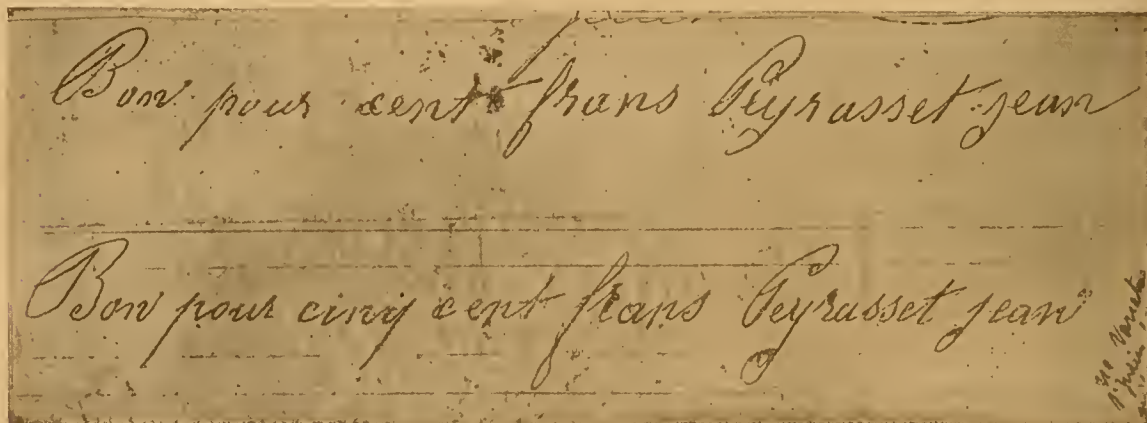 Bon pour cent frans Peyrasset jean
Bon pour cinq cent frans Peyrusset jean